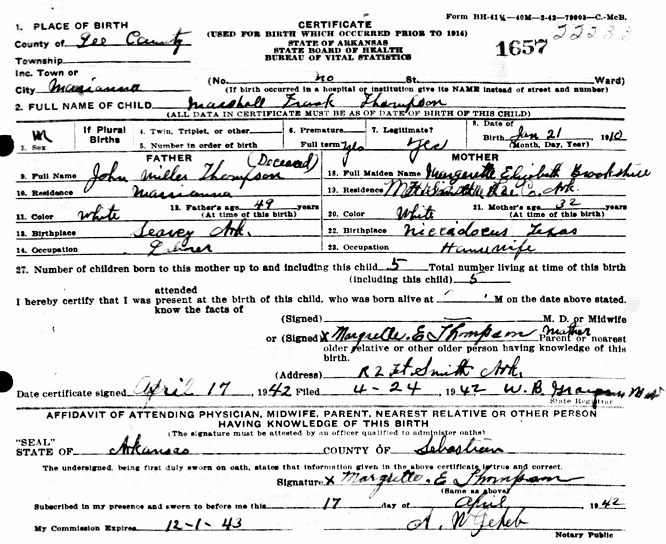 Form BH-41½—40M—2-42—79003—C.-McB.
1. PLACE OF BIRTH
CERTIFICATE
22233
County of Lee County
(USED FOR BIRTH WHICH OCCURRED PRIOR TO 1914)
STATE OF ARKANSAS
STATE BOARD OF HEALTH
BUREAU OF VITAL STATISTICS
1657
Township
Inc. Town or
City Marianna (No. no St. Ward)
(If birth occurred in a hospital or institution give its NAME instead of street and number)
2. FULL NAME OF CHILD Marshall Frank Thompson
(ALL DATA IN CERTIFICATE MUST BE AS OF DATE OF BIRTH OF THIS CHILD)
3. Sex M
If Plural Births
4. Twin, Triplet, or other
5. Number in order of birth
6. Premature
Full term? yes
7. Legitimate? Yes
8. Date of Birth Jan 21 1910
(Month, Day, Year)
FATHER (Deceased)
MOTHER
9. Full Name John Miller Thompson
18. Full Maiden Name Margrette Elizabeth Brookshire
10. Residence Marianna
19. Residence Co. Ark.
11. Color White
12. Father's age 49 years
(At time of this birth)
20. Color White
21. Mother's age 32 years
(At time of this birth)
13. Birthplace Searcy Ark.
22. Birthplace Niccadocus Texas
14. Occupation
23. Occupation Housewife
27. Number of children born to this mother up to and including this child 5 Total number living at time of this birth
(including this child) 5
attended
I hereby certify that I was present at the birth of this child, who was born alive at M on the above stated.
know the facts of
(Signed) M. D. or Midwife
or (Signed) x Margrette. E Thompson Mother Parent or nearest
older relative or other older person having knowledge of this
birth.
(Address) R2 Ft Smith Ark.
Date certificate signed April 17 1942 Filed 4-24 1942 W. B. Grayson M D
State Registrar
AFFIDAVIT OF ATTENDING PHYSICIAN, MIDWIFE, PARENT, NEAREST RELATIVE OR OTHER PERSON
HAVING KNOWLEDGE OF THIS BIRTH
(The signature must be attested by an officer qualified to administer oaths)
"SEAL"
STATE OF Arkansas COUNTY OF Sebastian
The undersigned, being first duly sworn on oath, states that information given in the above certificate is true and correct.
Signature x Margrette. E Thompson
(Same as above)
Subscribed in my presence and sworn to before me this 17 day of April 1942
My Commission Expires 12-1-43
Notary Public